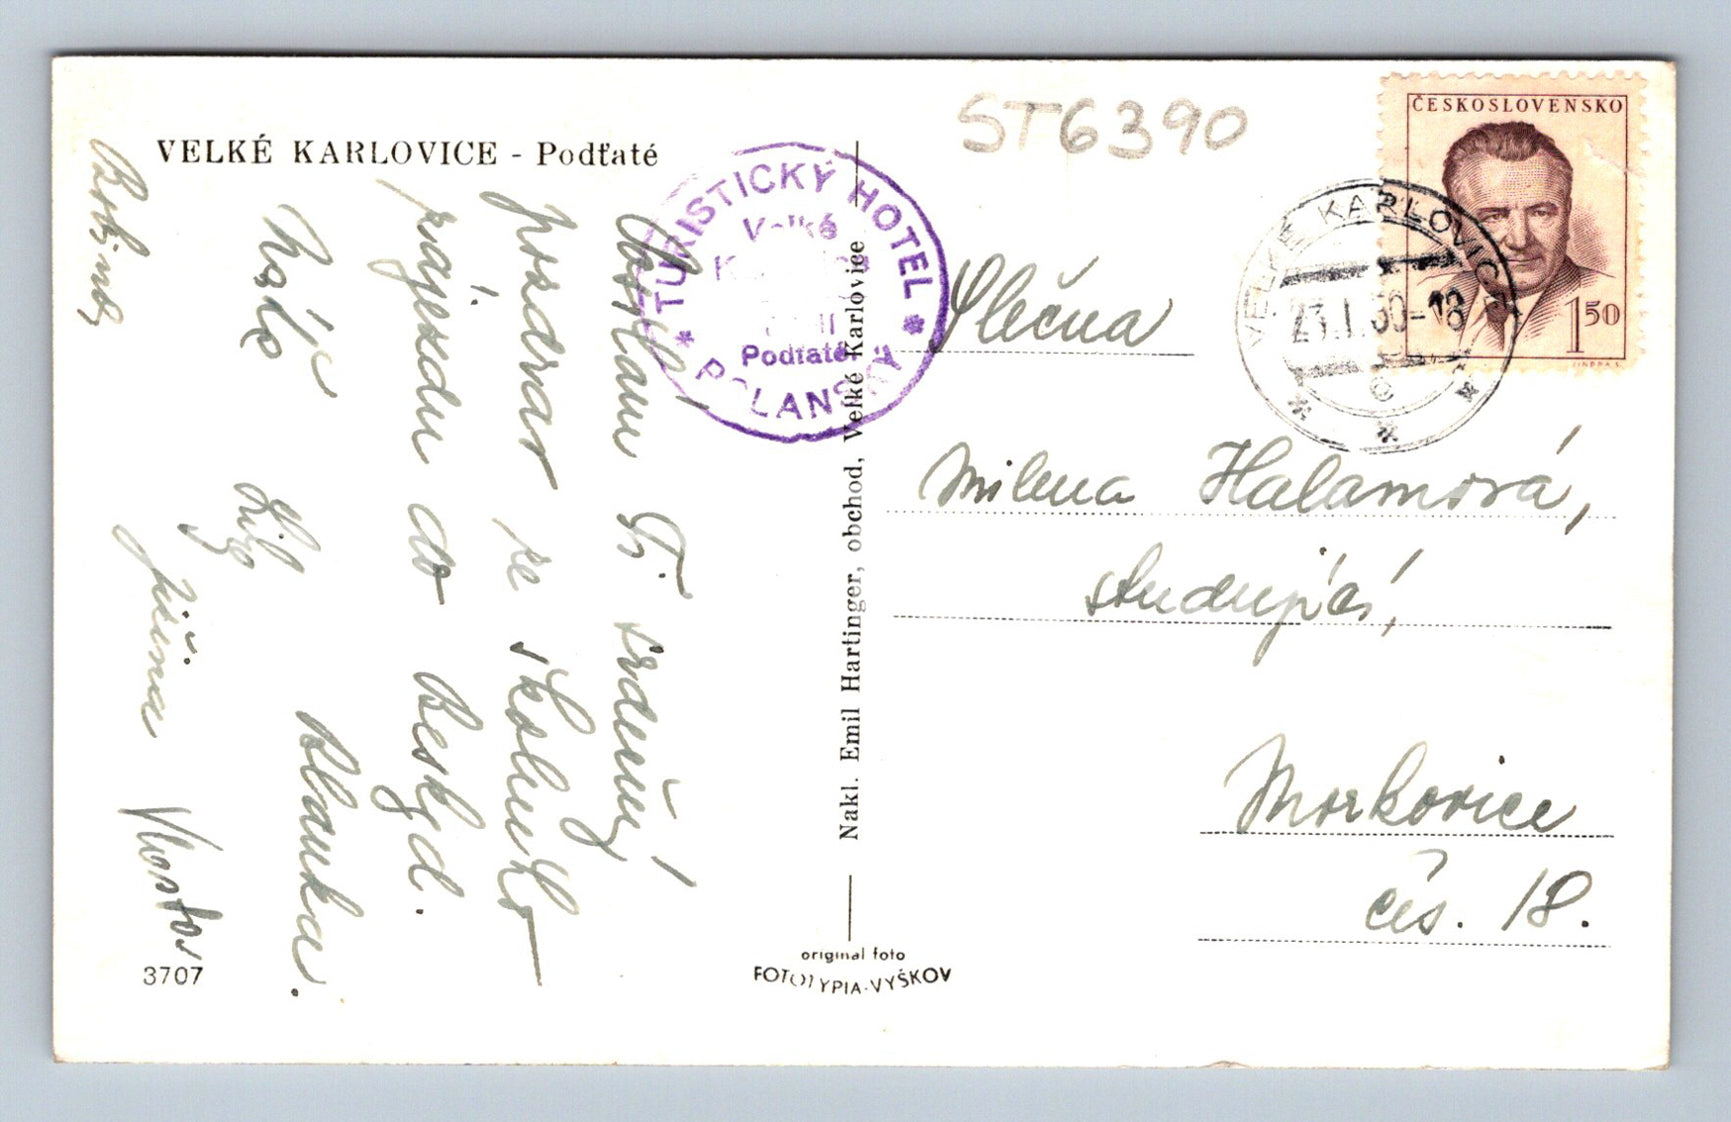 VELKÉ KARLOVICE - Podťaté
TURISTICKÝ HOTEL
Velké
Podťaté
POLANSKÝ
ST6390
ČESKOSLOVENSKO
1 50
VELKÉ KARLOVICE
23.I.50-18
e
Posílam Ti srdečný
pozdrav ze školního
zájezdu do Beskyd.
Blanka.
Jiřina
Slečna
Milena Halamová,
studující,
Morkovice
čís. 18.
Nakl. Emil Hartinger, obchod, Velké Karlovice
original foto
FOTOTYPIA-VYŠKOV
3707